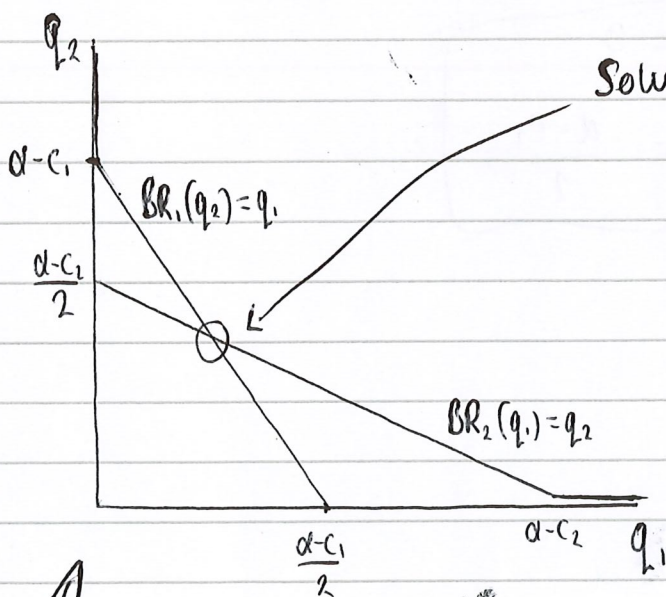 q₂
Solu
α-c₁
BR₁(q₂)=q₁
α-c₂
2
BR₂(q₁)=q₂
α-c₁
2
α-c₂
q₁